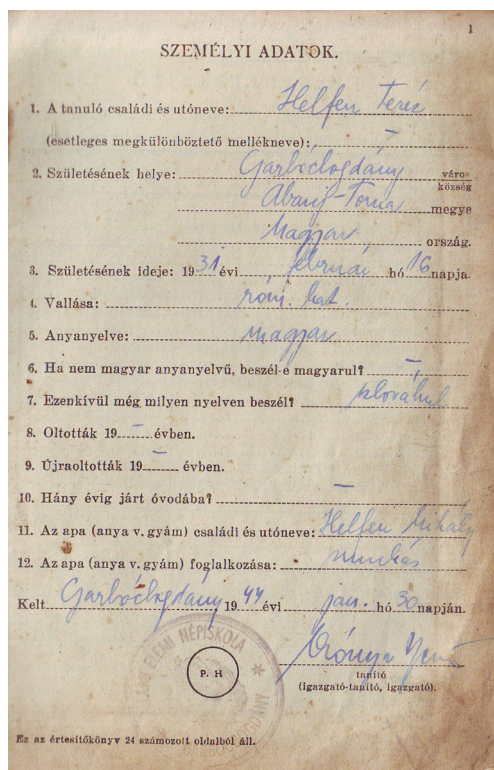 1
SZEMÉLYI ADATOK.
1. A tanuló családi és utóneve: Helfen Teréz
(esetleges megkülönböztető mellékneve): —
2. Születésének helye: Garbócbogdány város
község
Abauj-Torna megye
Magyar ország.
3. Születésének ideje: 1931 évi február hó 16 napja.
4. Vallása: róm. kat.
5. Anyanyelve: magyar
6. Ha nem magyar anyanyelvű, beszél-e magyarul? —
7. Ezenkívül még milyen nyelven beszél? szlovákul
8. Oltották 19 — évben.
9. Újraoltották 19 — évben.
10. Hány évig járt óvodába? —
11. Az apa (anya v. gyám) családi és utóneve: Helfen Mihály
12. Az apa (anya v. gyám) foglalkozása: munkás
Kelt Garbócbogdány 1944 évi jan. hó 30 napján.
ELEMI NÉPISKOLA
P. H
Jenő
tanító
(igazgató-tanító, igazgató).
Ez az értesítőkönyv 24 számozott oldalból áll.